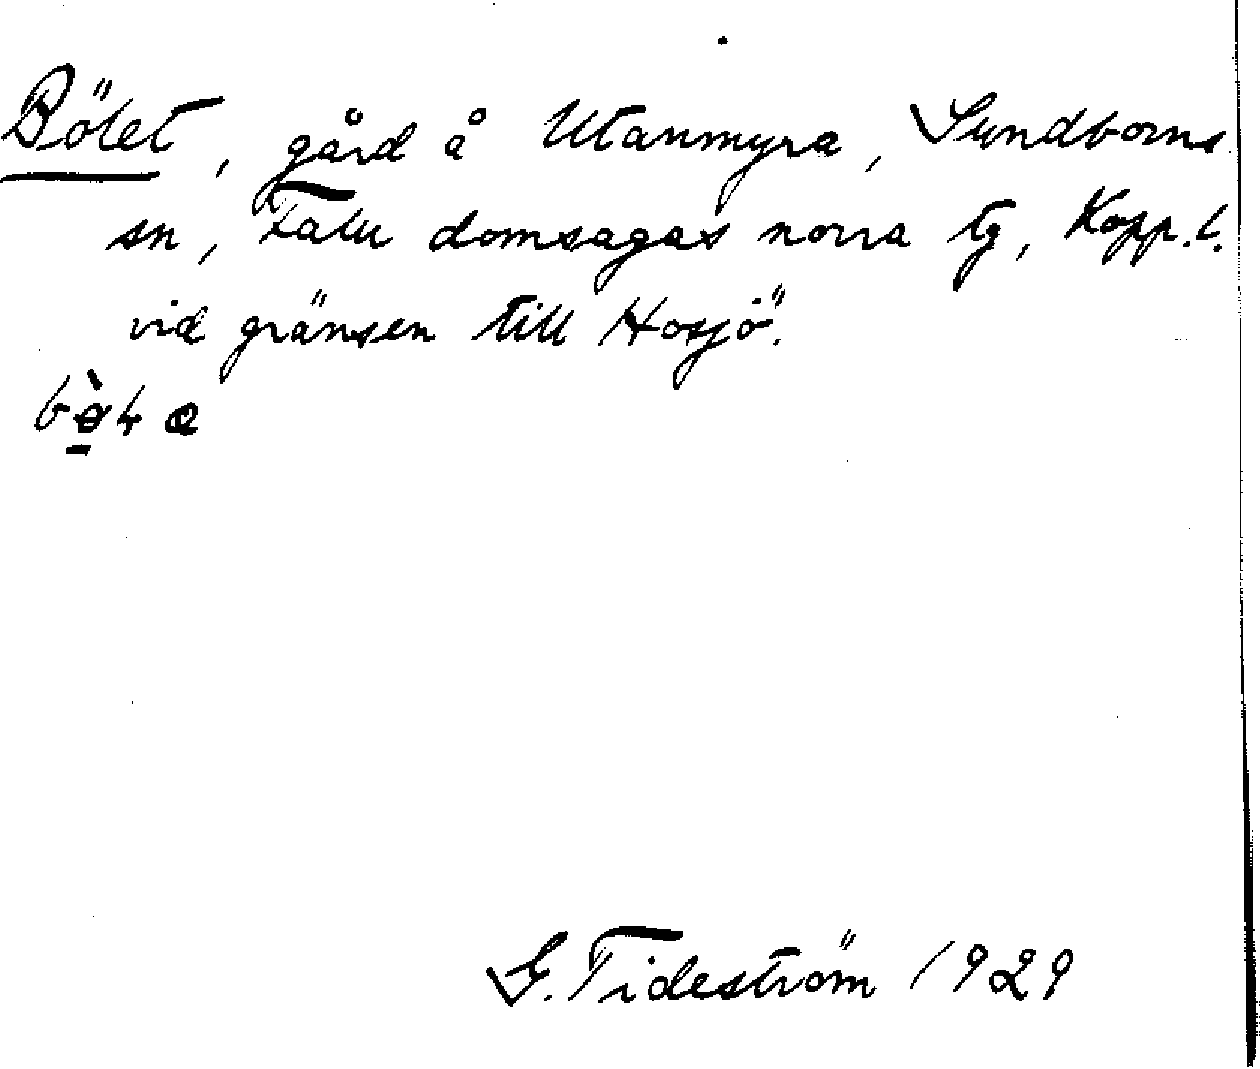 Bölet, gård å Utanmyra, Sundborns
sn, Falu domsagas norra tg, Kopp. l.
vid gränsen till Hosjö.
G. Tideström 1929